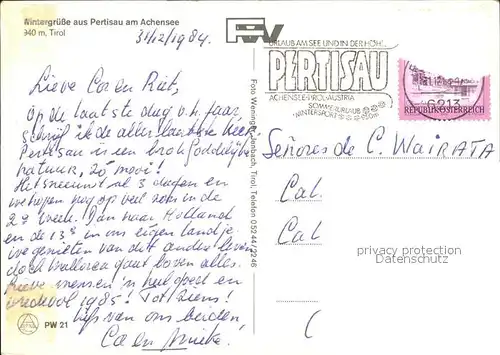 Wintergrüße aus Pertisau am Achensee
940 m, Tirol
31/12/1984.
Lieve Cor en Riet,
Op de laatste dag v.h. jaar
schrijf ik de aller laatste hier
Pertisau is een brok Goddelijke
natuur, zó mooi!
Het sneeuwt al 3 dagen en
we hopen nog op veel zon in de
2e week. Dan naar Holland
en de 13e in ons eigen landje
we genieten van dit andere leven
doch Mallorca gaat boven alles.
Lieve mensen 'n heel goed en
vredevol 1985! Tot ziens!
liefs van ons beiden,
Co en Mieke.
PW 21
Foto Wenninger, Jenbach, Tirol, Telefon 05244/2246
URLAUB AM SEE UND IN DER HÖH'...
PERTISAU
ACHENSEE-TIROL-AUSTRIA
SOMMERURLAUB
WINTERSPORT
6213
REPUBLIK ÖSTERREICH
Señores de C. WAIRATA
Cal.
Cal
privacy protection
Datenschutz